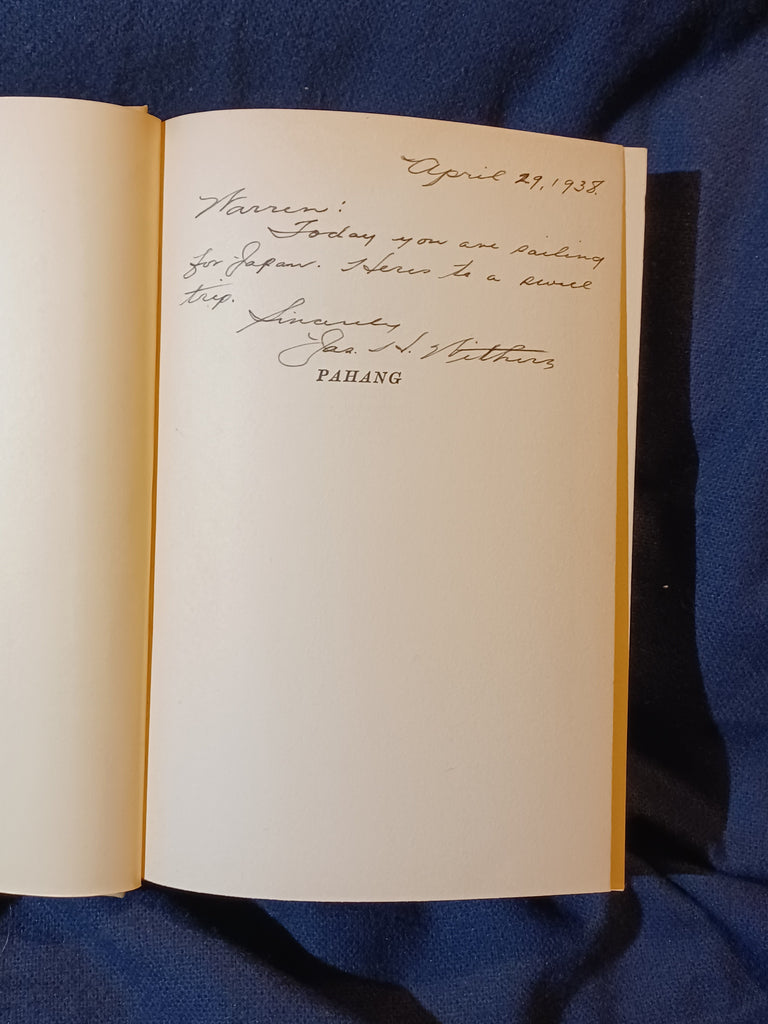 April 29, 1938.
Warren:
Today you are sailing
for Japan. Heres to a swell
trip.
Sincerely
Jas. H. Withers
PAHANG